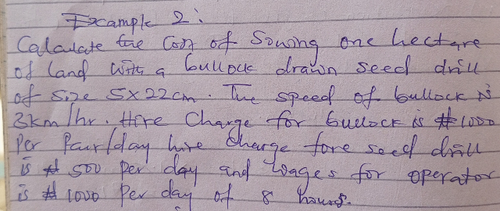 Example 2:
Calculate the Cost of Sowing one hectare
of land with a bullock drawn seed drill
of size 5x22cm. The speed of bullock is
3km/hr. Hire Charge for bullock is ₦1000
per Pair/day hire charge fore seed drill
is ₦ 500 per day and wages for operator
is ₦ 1000 per day of 8 hours.